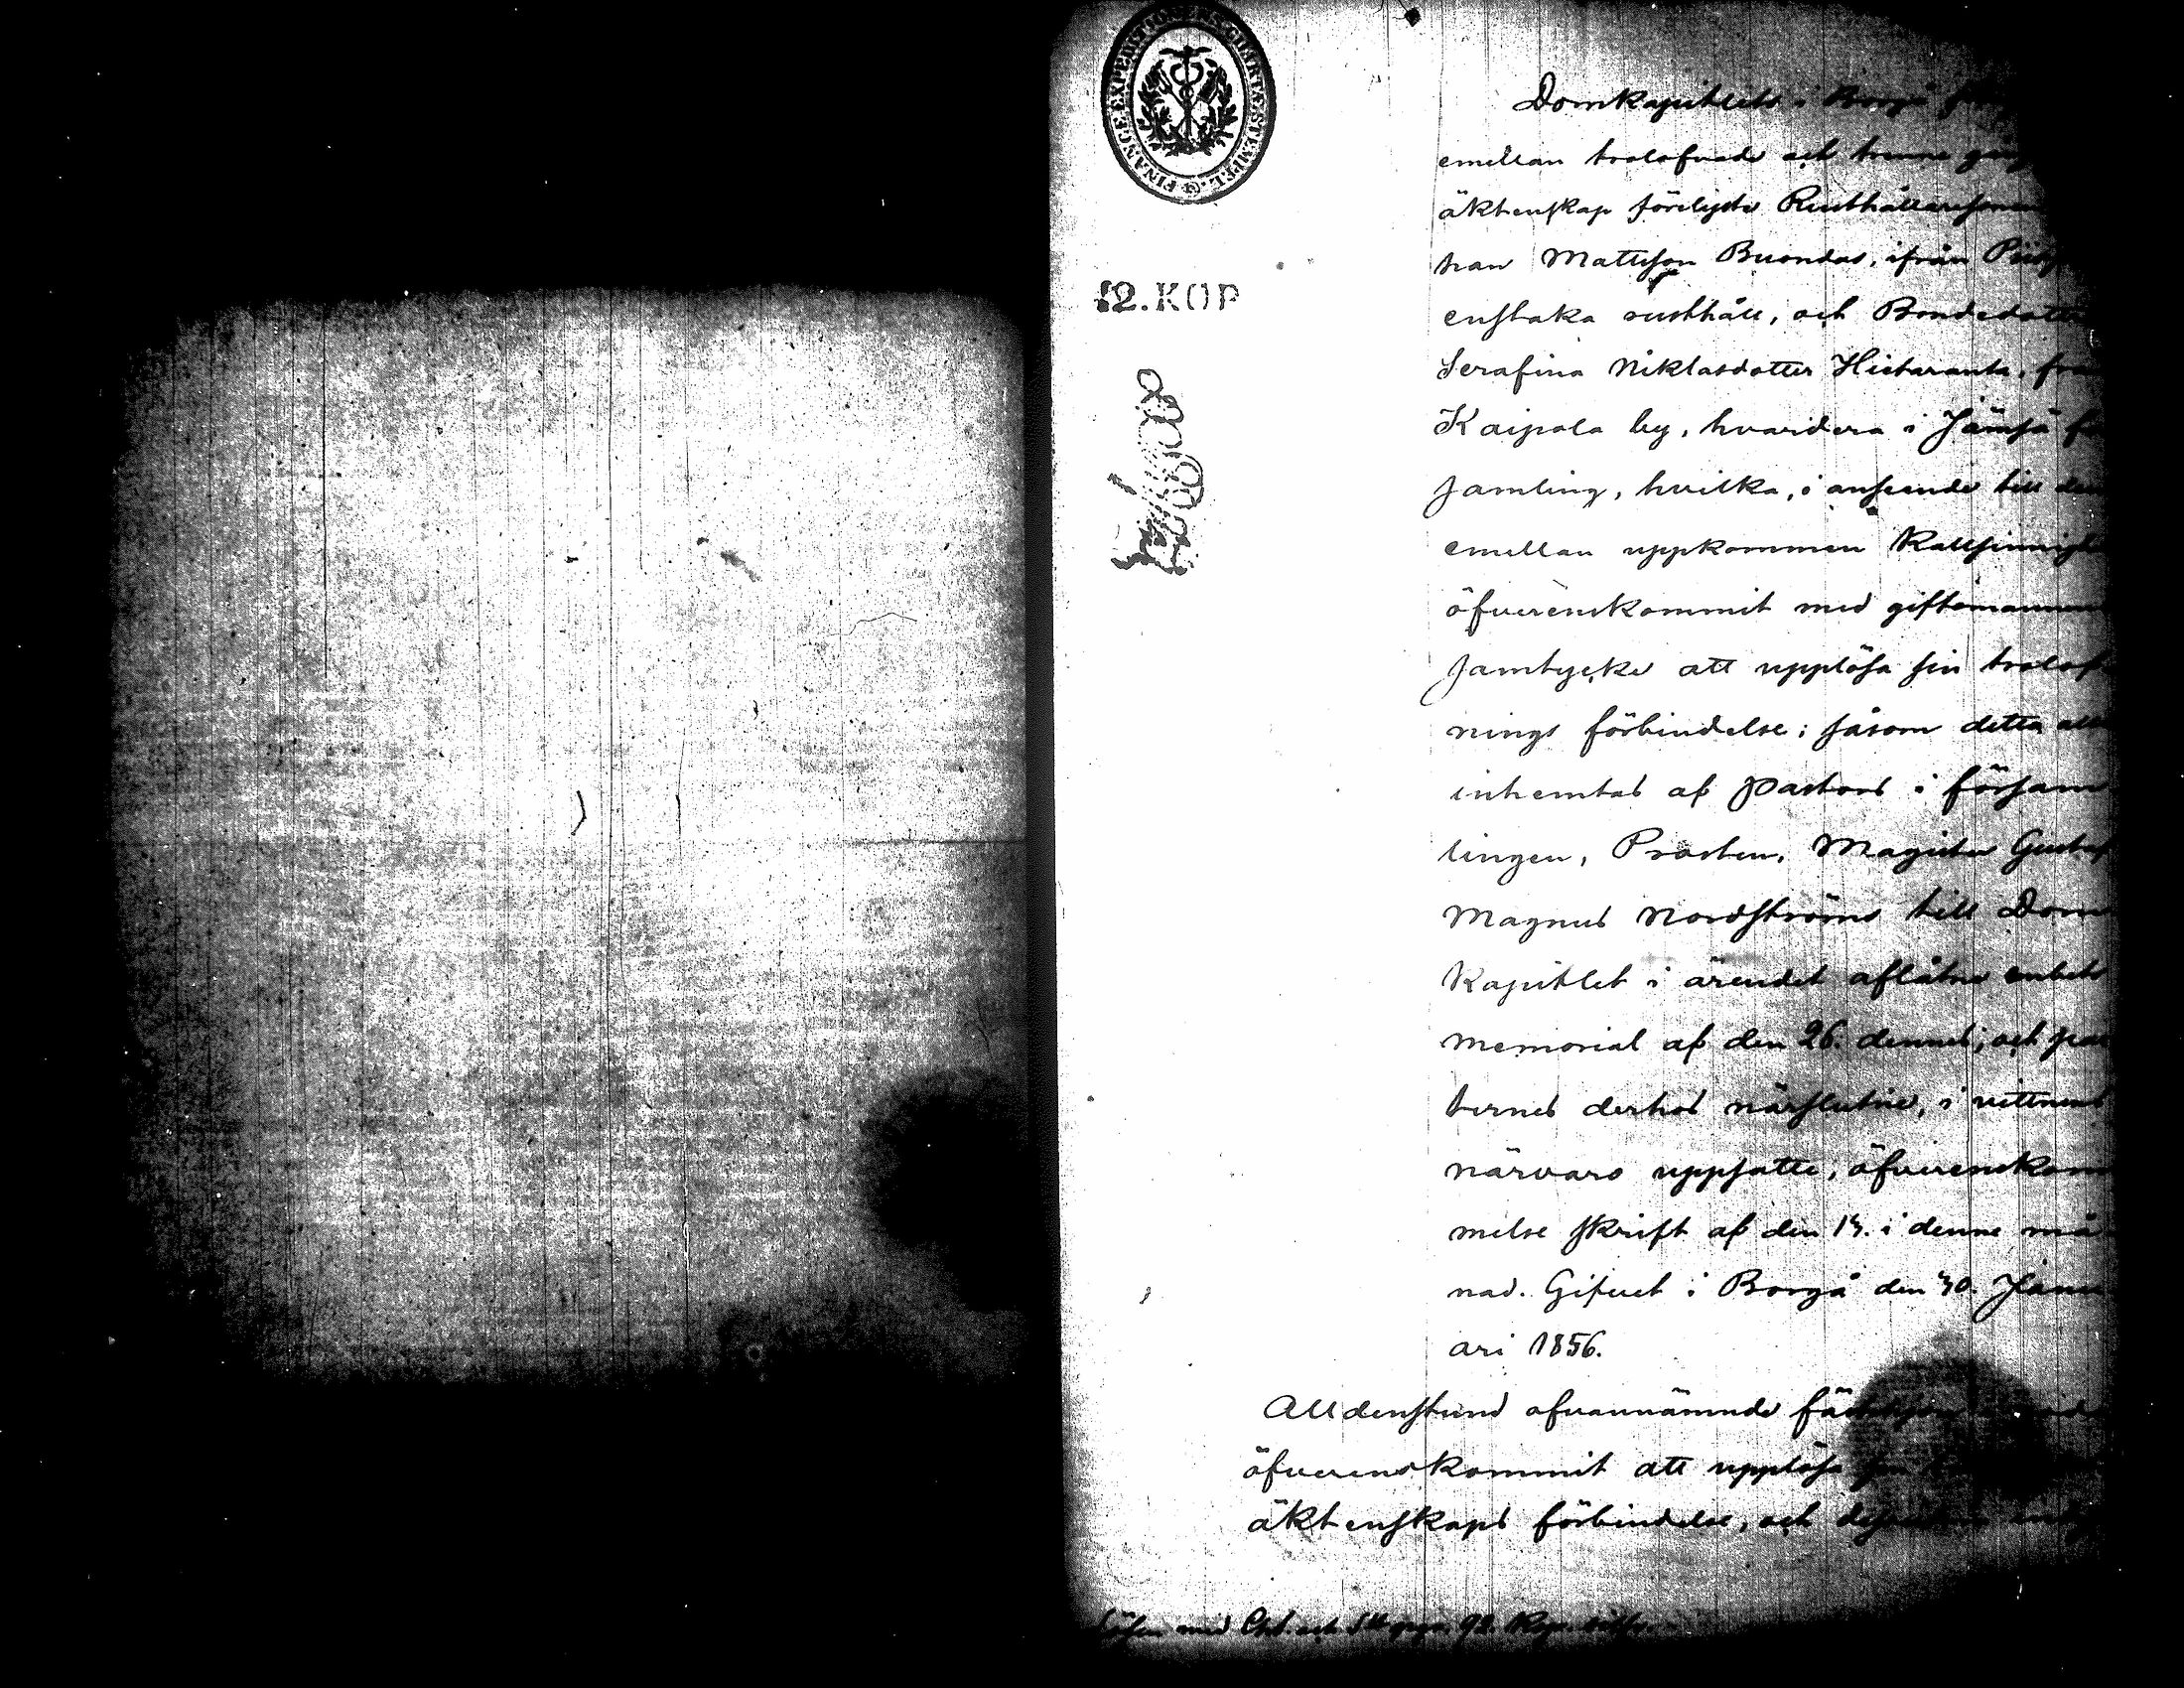 FINANCE EXPEDITIONS CHARTÆ STEMPEL
12. KOP
Domkapitlets i Borgå
emellan trolofvade och trenne
äktenskap förelyste Rusthållaresonen
han Mattsson Buondas, ifrån
enstaka rusthåll, och Bondedotter
Serafina Niklasdotter Hietaranta, från
Kaipola by, hvardera i Jämsä för
samling, hvilka, i anseende till dem
emellan uppkommen Kallsinnighet
öfverenskommit med giftomannens
samtycke att upplösa sin trolof
nings förbindelse; såsom detta allt
inhemtas af Pastors i försam
lingen, Prosten, Magister Gustaf
Magnus Nordströms till Dom
Kapitlet i ärendet aflåtne embets
memorial af den 26. dennes; och par
ternes derhos närslutne, i vittnens
närvaro uppsatte, öfverenskom
melse skrift af den 14. i denne må
nad. Gifvet i Borgå den 30. Janu
ari 1856.
Alldenstund ofvannämnde
öfverenskommit att upplösa sin
äktenskaps förbindelse, och
Lösen med Chd. och 92. Kop. silfr.